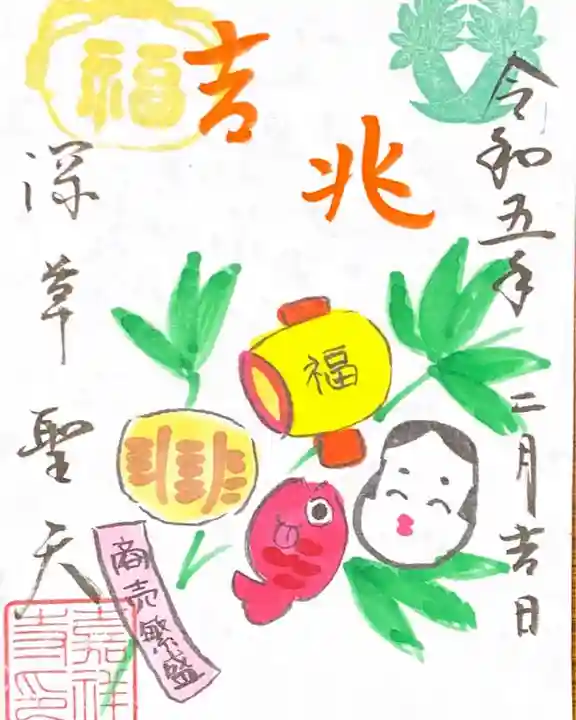 令和五年 二月吉日
吉兆
福
福
深草聖天
商売繁盛
嘉祥
寺印